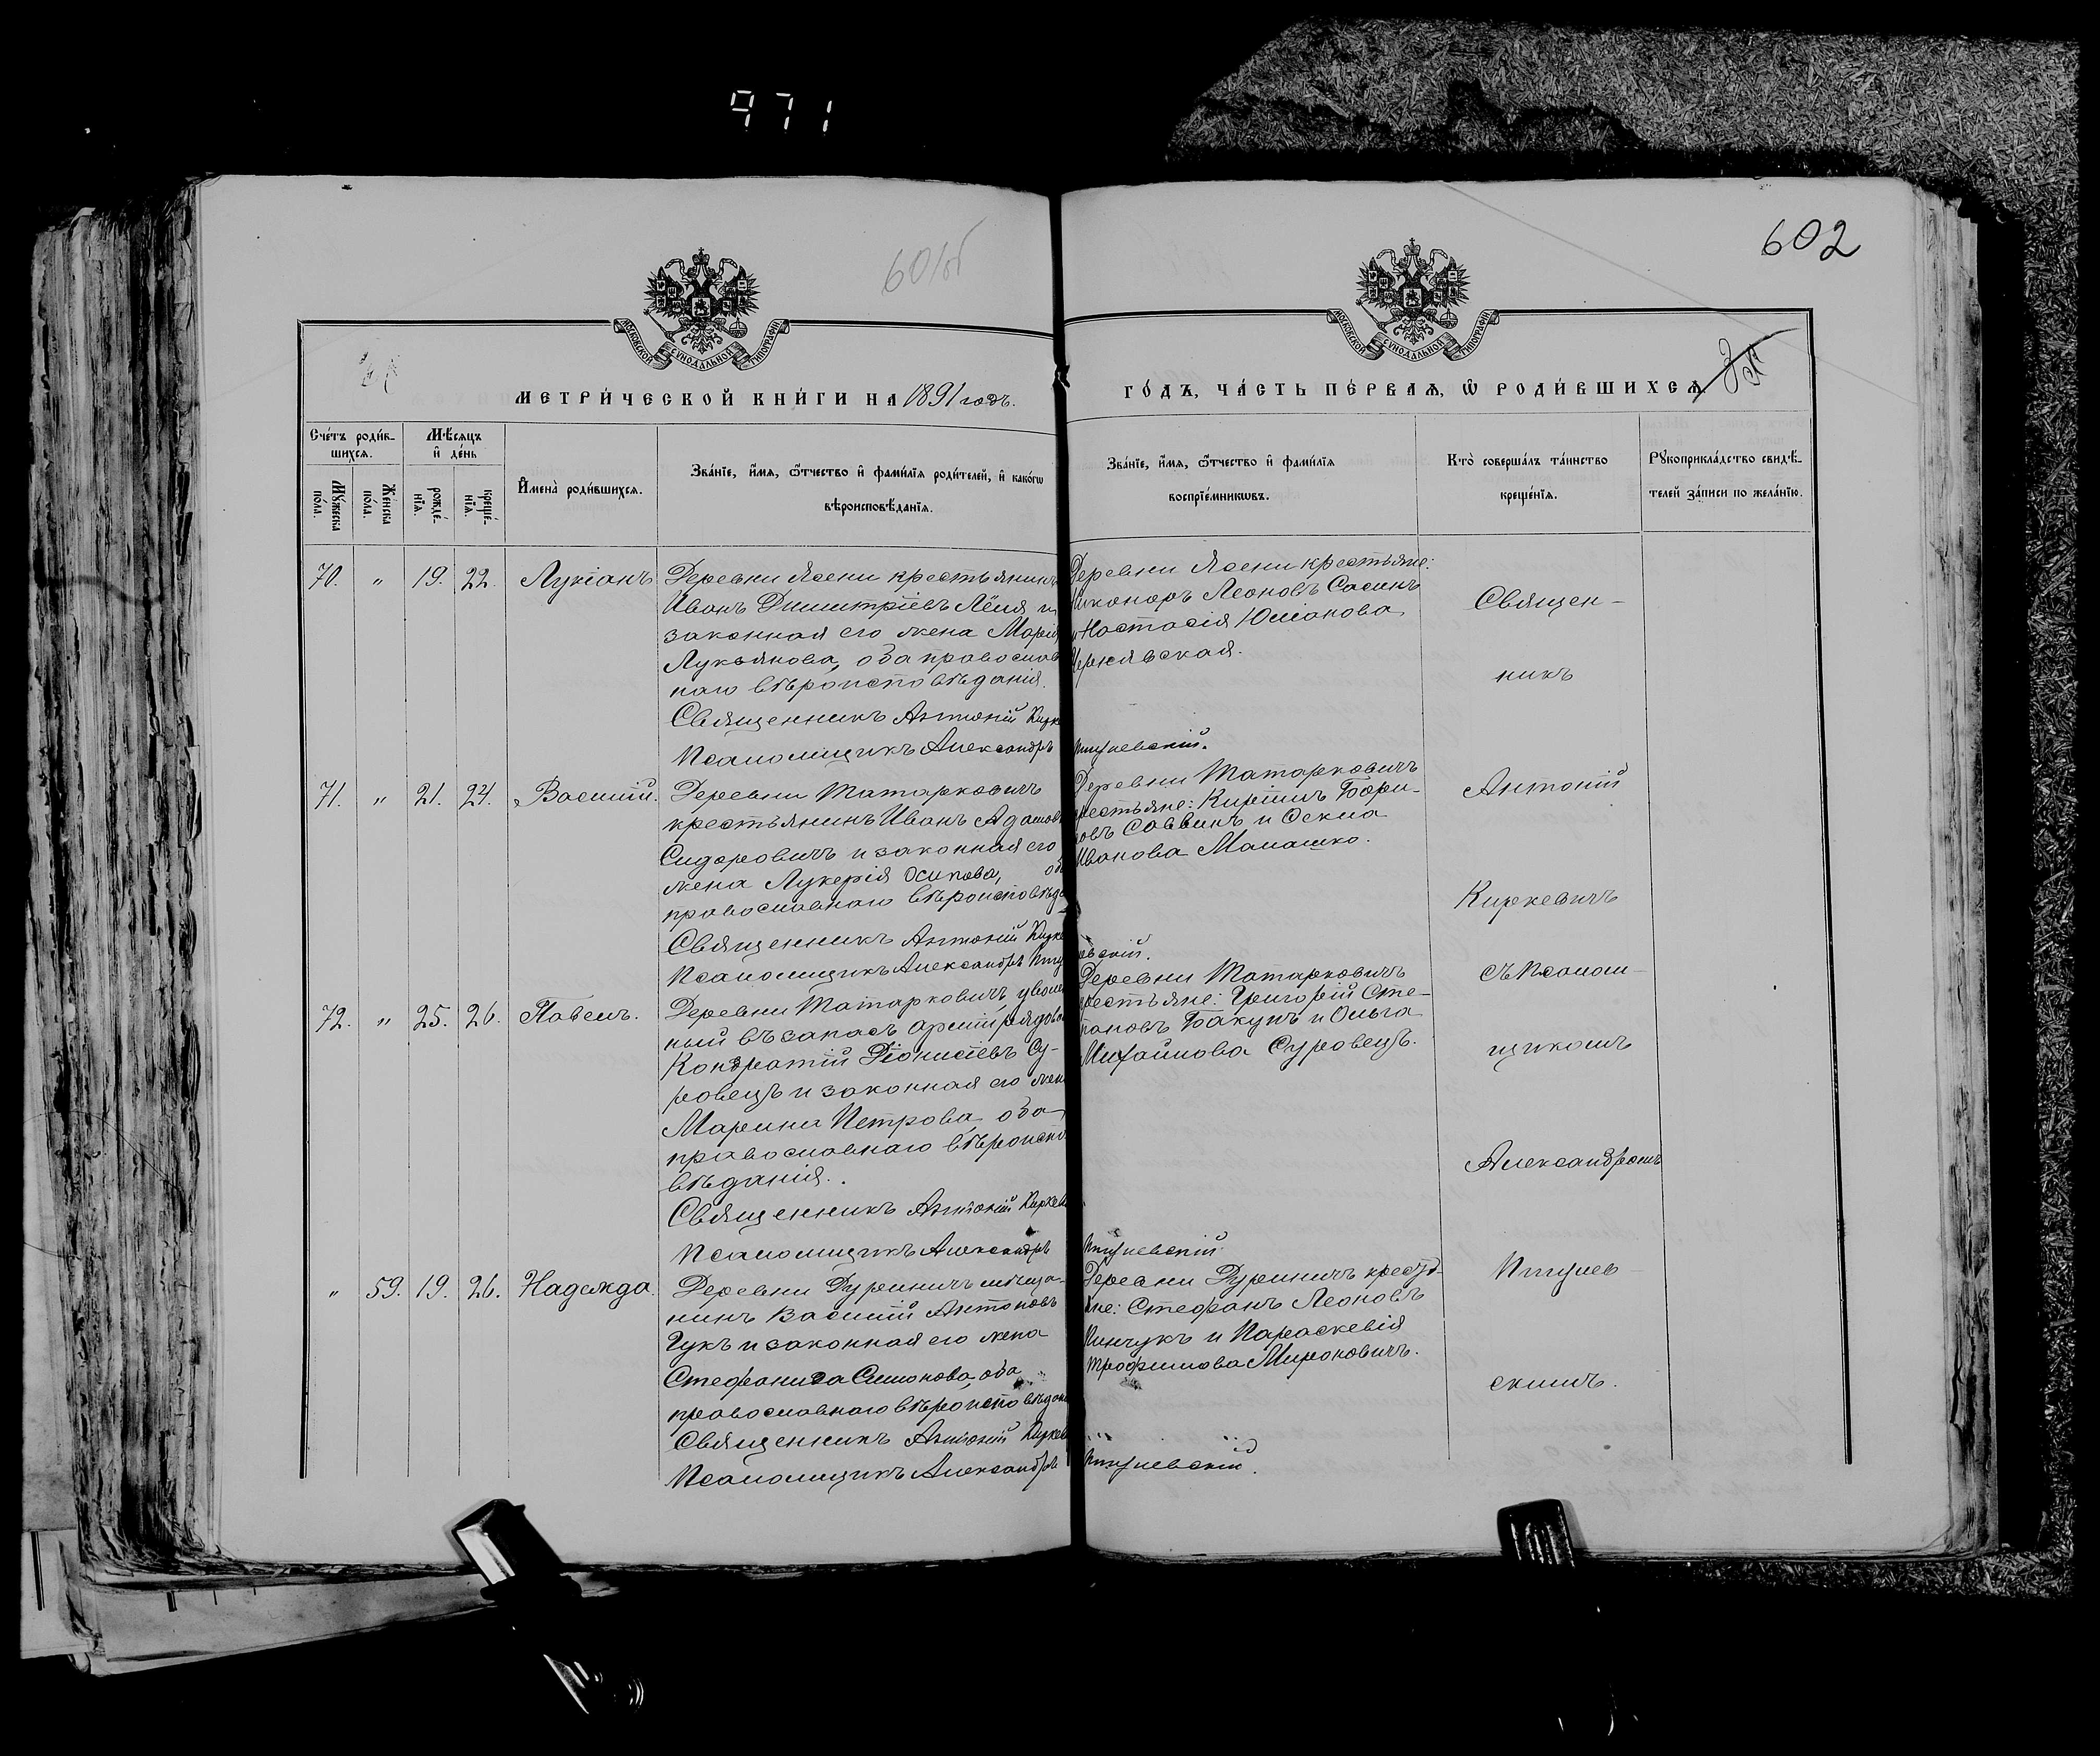 971
601об
602
МОСКОВСКОЙ СѴНОДАЛЬНОЙ ТИПОГРАФІИ
МОСКОВСКОЙ СѴНОДАЛЬНОЙ ТИПОГРАФІИ
МЕТРИ́ЧЕСКОЙ КНИ́ГИ НА 1891 годъ.
ГО́ДЪ, ЧА́СТЬ ПЕ́РВАѦ, Ѡ҆ РОДИ́ВШИХСѦ.
Сче́тъ роди́в-
шихсѧ.
Мꙋ́жеска по́ла.
Же́нска по́ла.
Мѣ́сѧцъ
и҆ де́нь
рожде́-нїѧ.
креще́-нїѧ.
И҆мена̀ роди́вшихсѧ.
Зва́нїе, и҆́мѧ, ѻ҆́тчество и҆ фами́лїѧ роди́телей, и҆ како́гѡ
вѣроисповѣ́данїѧ.
Зва́нїе, и҆́мѧ, ѻ҆́тчество и҆ фами́лїѧ
воспрїе́мникѡвъ.
Кто̀ соверша́лъ та́инство
креще́нїѧ.
Рꙋкоприкла́дство свидѣ́-
телей за́писи по жела́нїю.
70. " 19. 22. Лукіанъ
Деревни Ясени крестьянинъ
Иванъ Димитріевъ Лёля и
законная его жена Марія
Лукьянова, оба православ
наго вѣроисповѣданія.
Священникъ Антоній Кирке
Псаломщикъ Александръ
Деревни Ясени крестьяне:
Никоноръ Леоновъ Сасинъ
и Настасія Юліанова
Чернявская.
Пигулевскій.
71. " 21. 24. Василій.
Деревни Татарковичъ
крестьянинъ Иванъ Адамовъ
Сидоровичъ и законная его
жена Лукерія Осипова, оба
православнаго вѣроисповѣда
Священникъ Антоній Кирке
Псаломщикъ Александръ Пигу
Деревни Татарковичъ
крестьяне: Кириллъ Бори-
совъ Саввинъ и Текла
Иванова Малашко.
левскій.
72. " 25. 26. Павелъ.
Деревни Татарковичъ, уволен
ный въ запасъ арміи, рядовой
Кондратій Діонисіевъ Су-
ровецъ и законная его жена
Марина Петрова, оба
православнаго вѣроиспо
вѣданія.
Священникъ Антоній Киркев
Псаломщикъ Александръ
Деревни Татарковичъ
крестьяне: Григорій Сте-
пановъ Бакунъ и Ольга
Михайлова Суровецъ.
Пигулевскій
" 59. 19. 26. Надежда.
Деревни Дуриничъ мѣща-
нинъ Василій Антоновъ
Чукъ и законная его жена
Стефанида Симонова, оба
православнаго вѣроисповѣдан
Священникъ Антоній Киркев
Псаломщикъ Александръ
Деревни Дуриничъ кресть-
яне: Стефанъ Леоновъ
Минчукъ и Параскевія
Трофимова Мироновичъ.
Пигулевскій.
Священ-
никъ
Антоній
Киркевичъ
съ псалом-
щикомъ
Александромъ
Пигулев-
скимъ.